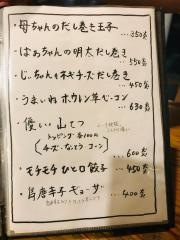 ・母ちゃんのだし巻き玉子
…350名
・ばぁちゃんの明太だし巻き
…550名
・じっちゃんネギチーズだし巻き
…450名
・うまいね ホウレン草ベーコン
…630名
・優しい山てつ
トッピング各100円
(チーズ・なっとう・コーン)
…600名
・モチモチ ひとロ餃子 …450名
・唐辛子ギョーザ
…400名